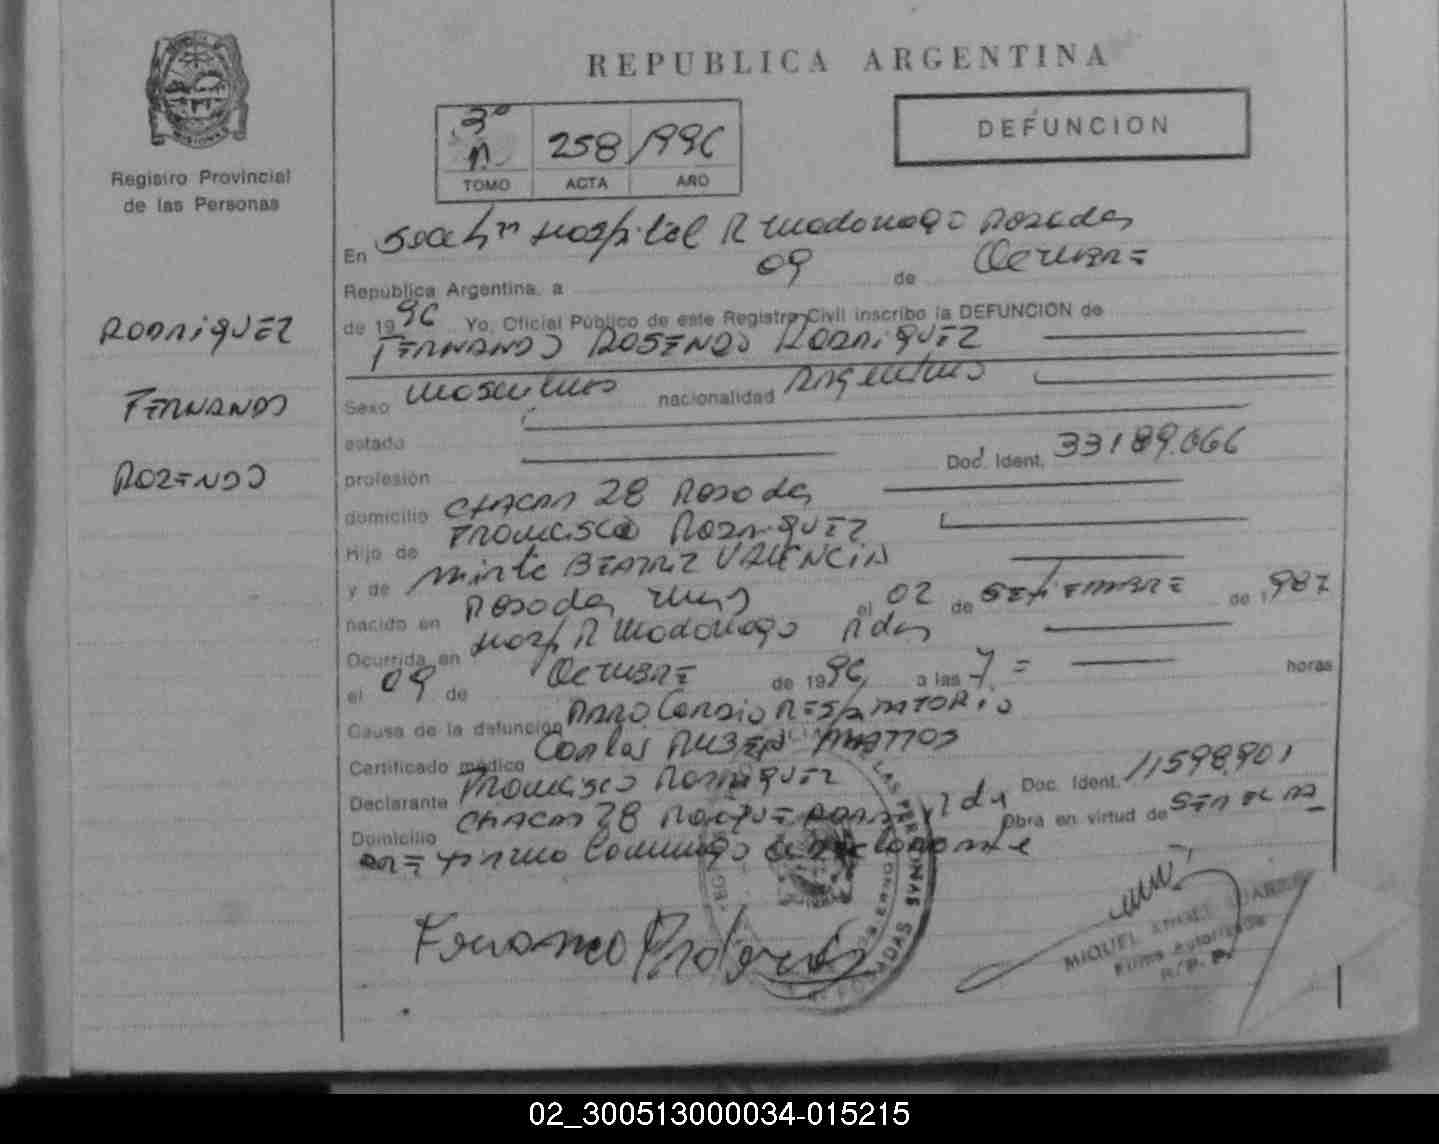 REPUBLICA ARGENTINA
DEFUNCION
3º
258 1996
TOMO ACTA AÑO
Registro Provincial
de las Personas
MISIONES
En Hospital R Madariaga Posadas
República Argentina, a 09 de Octubre
de 1996 Yo, Oficial Público de este Registro Civil inscribo la DEFUNCION de
FERNANDO ROSENDO RODRIGUEZ
RODRIGUEZ
FERNANDO
ROZENDO
Sexo masculino nacionalidad Argentino
estado
profesión Doc. Ident. 33189.066
domicilio CHACRA 28 Posadas
Hijo de FRANCISCO RODRIGUEZ
y de Mirta BEATRIZ VALENCIA
nacido en Posadas el 02 de SETIEMBRE de 1987
Ocurrida en Hosp R Madariaga Pdas
el 09 de OCTUBRE de 1996 a las 7 = horas
Causa de la defunción PARO CARDIO RESPIRATORIO
Certificado médico Carlos RUBEN MATTOS
Declarante FRANCISCO RODRIGUEZ Doc. Ident. 11598.901
Domicilio CHACRA 28 Pdas Obra en virtud de SER EL PA
DRE
Francisco Rodriguez
MIGUEL ANGEL
Firma Autorizada
R.P.P.
02_300513000034-015215